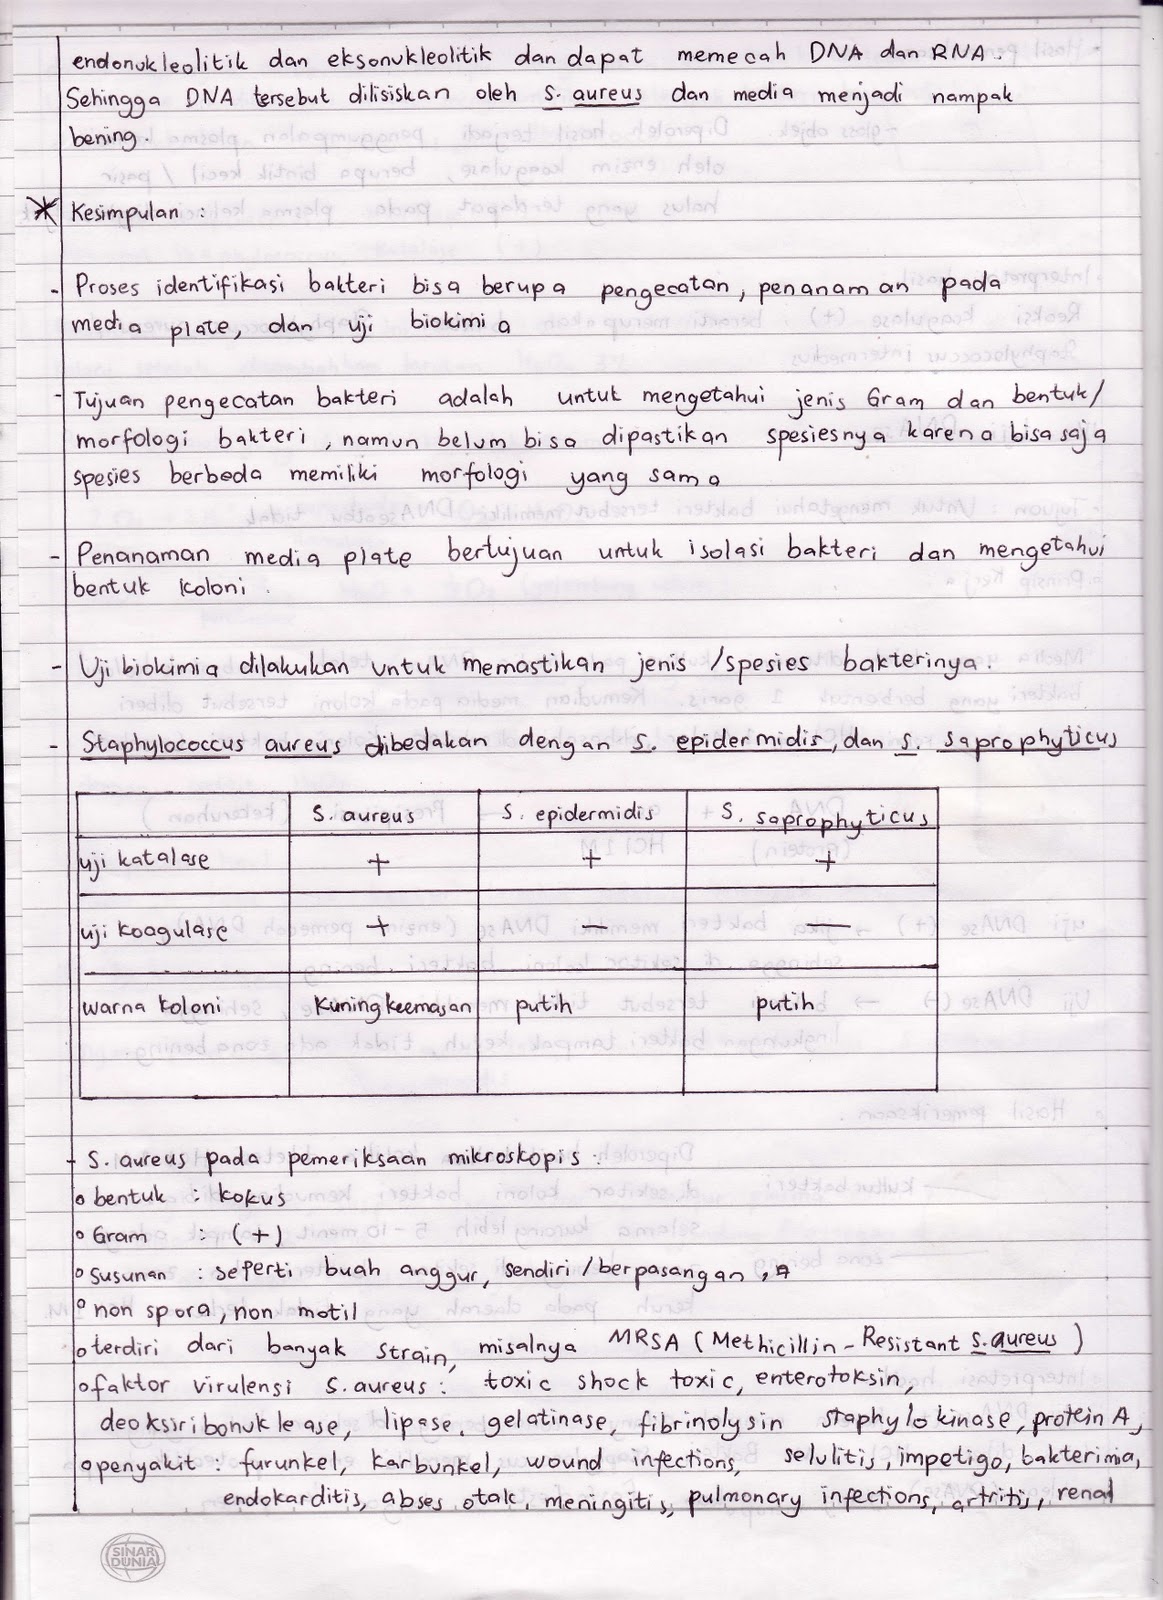 endonukleolitik dan eksonukleolitik dan dapat memecah DNA dan RNA.
Sehingga DNA tersebut dilisiskan oleh S. aureus dan media menjadi nampak
bening.
* Kesimpulan :
- Proses identifikasi bakteri bisa berupa pengecatan, penanaman pada
media plate, dan uji biokimia
- Tujuan pengecatan bakteri adalah untuk mengetahui jenis Gram dan bentuk/
morfologi bakteri, namun belum bisa dipastikan spesiesnya karena bisa saja
spesies berbeda memiliki morfologi yang sama
- Penanaman media plate bertujuan untuk isolasi bakteri dan mengetahui
bentuk koloni.
- Uji biokimia dilakukan untuk memastikan jenis/spesies bakterinya.
- Staphylococcus aureus dibedakan dengan S. epidermidis, dan S. saprophyticus
S. aureus S. epidermidis S. saprophyticus
uji katalase + + +
uji koagulase + - -
warna koloni Kuning keemasan putih putih
- S. aureus pada pemeriksaan mikroskopis :
o bentuk : kokus
o Gram : (+)
o Susunan : seperti buah anggur, sendiri/berpasangan, 4
o non spora, non motil
o terdiri dari banyak strain, misalnya MRSA (Methicillin-Resistant S. aureus)
o faktor virulensi S. aureus : toxic shock toxic, enterotoksin,
deoksiribonuklease, lipase, gelatinase, fibrinolysin staphylokinase, protein A,
o penyakit : furunkel, karbunkel, wound infections, selulitis, impetigo, bakterimia,
endokarditis, abses otak, meningitis, pulmonary infections, artritis, renal
SINAR
DUNIA